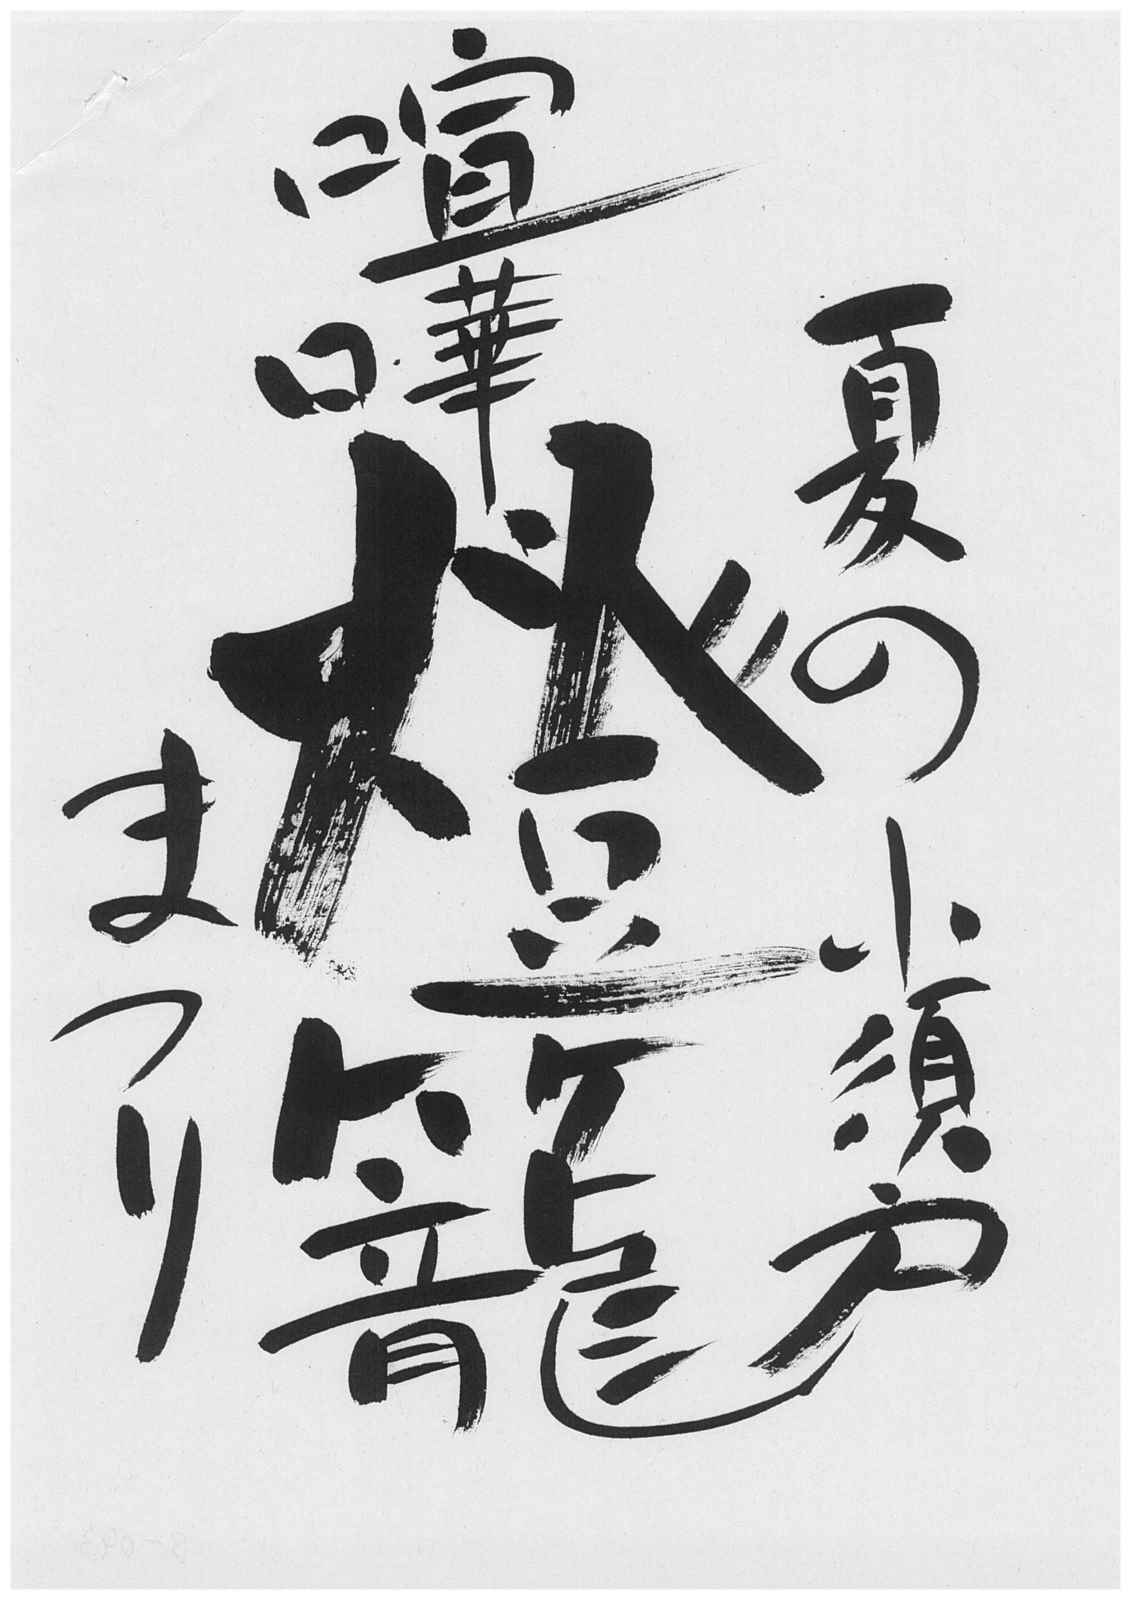 夏の小須戸
喧嘩燈籠
まつり